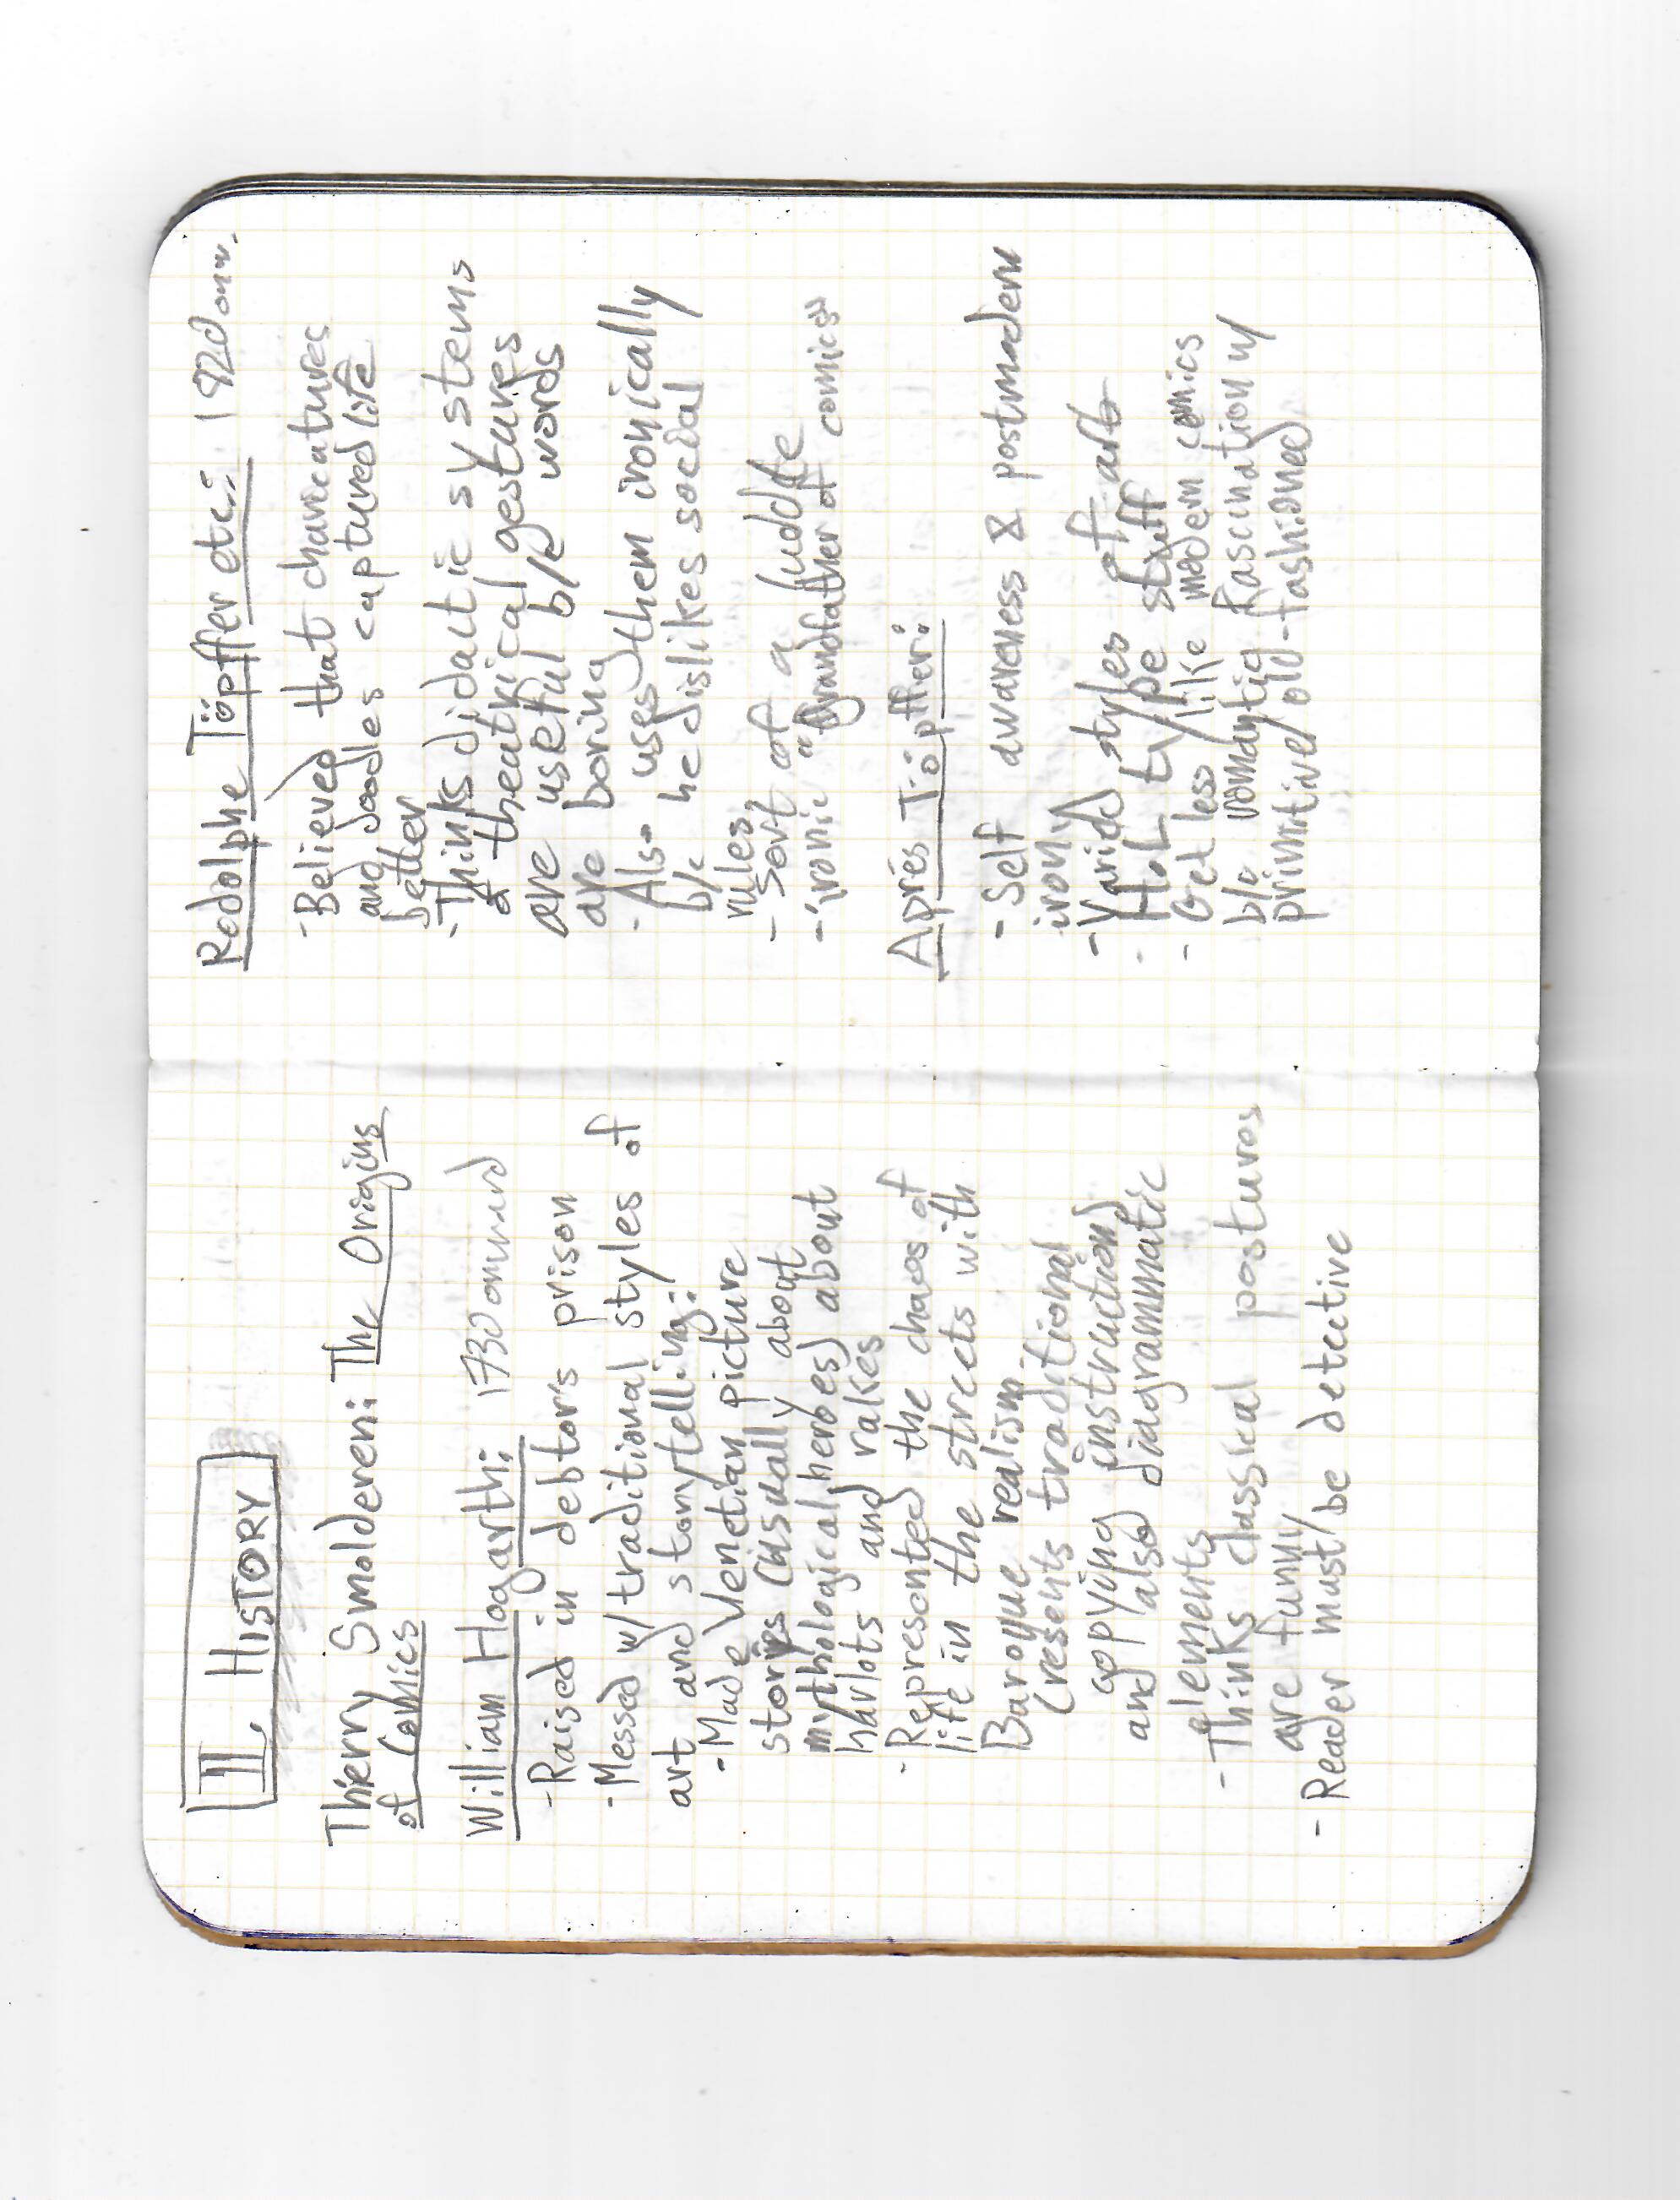 II. HISTORY
Thierry Smolderen: The Origins
of Comics
William Hogarth: 1730 onward
-Raised in debtor's prison
-Messed w/ traditional styles of
art and storytelling:
-Made Venetian picture
stories (usually about
mythological heroes) about
harlots and rakes
-Represented the chaos of
life in the streets with
Baroque realism
(resents traditional
copying instruction)
and also diagrammatic
elements
-Thinks classical postures
are funny
-Reader must be detective
Rodolphe Töpffer etc.: 1820 onw.
-Believed that charicatures
and doodles captured life
better
-Thinks didactic systems
of theatrical gestures
are useful b/c words
are boring
-Also uses them ironically
b/c he dislikes social
rules.
-Sort of a luddite
-ironic "Grandfather of comics"
Aprés Töpffer:
-Self awareness & postmodern
irony
-Varied styles of art
-H.L type stuff
-Get less like modern comics
b/c romantic fascination w/
primitive/old-fashioned